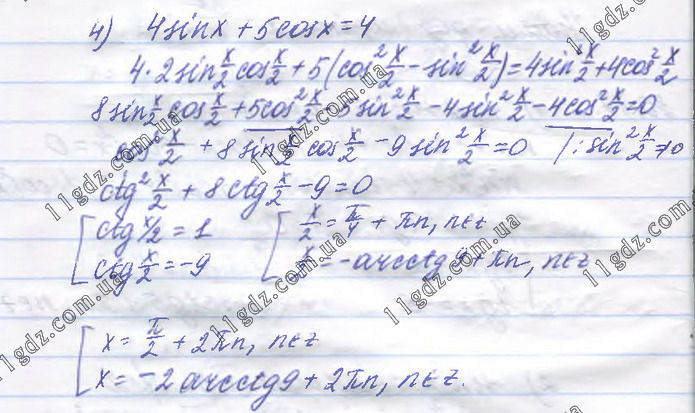 4) 4sinx + 5cosx = 4
4·2sin x/2 cos x/2 + 5(cos² x/2 - sin² x/2) = 4sin² x/2 + 4cos² x/2
8sin x/2 cos x/2 + 5cos² x/2 - 5sin² x/2 - 4sin² x/2 - 4cos² x/2 = 0
cos² x/2 + 8sin x/2 cos x/2 - 9sin² x/2 = 0 |: sin² x/2 ≠ 0
ctg² x/2 + 8ctg x/2 - 9 = 0
[ ctg x/2 = 1 [ x/2 = π/4 + πn, n∈z
ctg x/2 = -9 x/2 = -arcctg9 + πn, n∈z
[ x = π/2 + 2πn, n∈z
x = -2arcctg9 + 2πn, n∈z.
11gdz.com.ua
11gdz.com.ua
11gdz.com.ua
11gdz.com.ua
11gdz.com.ua
11gdz.com.ua